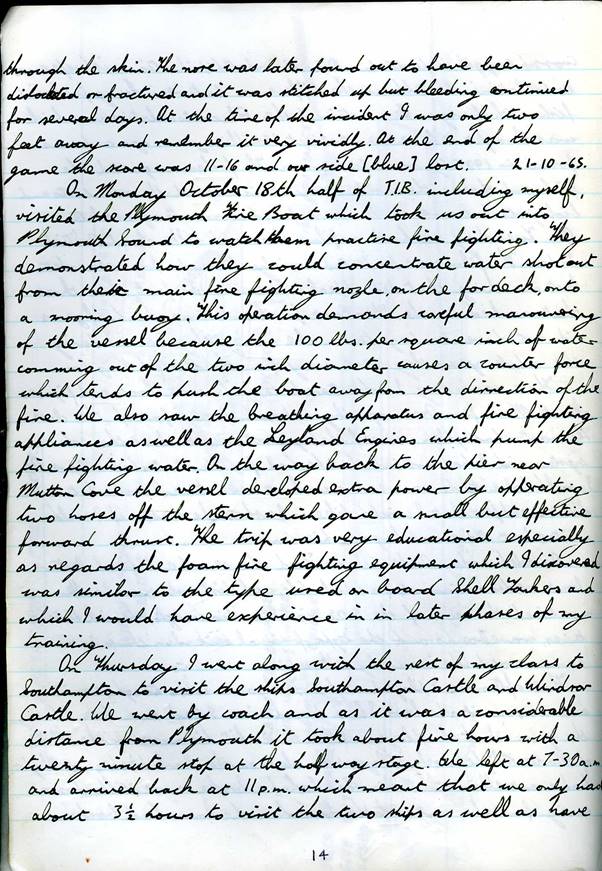 through the skin. The nose was later found out to have been
dislocated or fractured and it was stitched up but bleeding continued
for several days. At the time of the incident I was only two
feet away and remember it very vividly. At the end of the
game the score was 11-16 and our side [blue] lost. 21-10-65.
On Monday October 18th half of T.I.B. including myself,
visited the Plymouth Fire Boat which took us out into
Plymouth Sound to watch them practive fire fighting. They
demonstrated how they could concentrate water shot out
from their main fire fighting nozle, on the fordeck, onto
a mooring buoy. This operation demands careful manouvering
of the vessel because the 100 lbs. per square inch of water
comming out of the two inch diameter causes a counter force
which tends to push the boat away from the dirrection of the
fire. We also saw the breathing apparatus and fire fighting
appliances as well as the Leyland Engines which pump the
fire fighting water. On the way back to the pier near
Mutton Cove the vessel developed extra power by opperating
two hoses off the stern which gave a small but effective
forward thrust. The trip was very educational especially
as regards the foam fire fighting equipment which I discovered
was similar to the type used on board Shell Tankers and
which I would have experience in in later phases of my
training.
On Thursday I went along with the rest of my class to
Southampton to visit the ships Southampton Castle and Windsor
Castle. We went by coach and as it was a considerable
distance from Plymouth it took about five hours with a
twenty minute stop at the half way stage. We left at 7-30a.m
and arrived back at 11p.m. which meant that we only had
about 3½ hours to visit the two ships as well as have
14